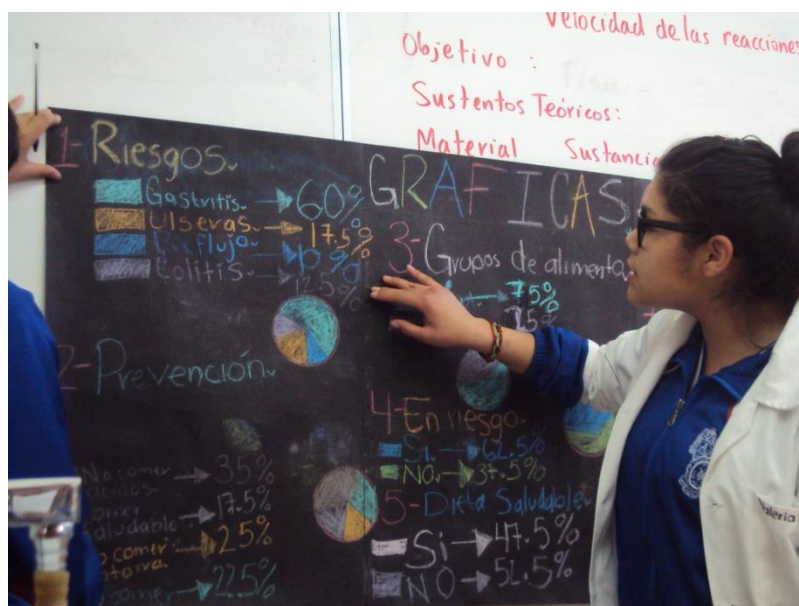 Velocidad de las reacciones
Objetivo :
Sustentos Teóricos:
Material Sustancia
GRAFICAS
1-Riesgos.
Gastritis. 60%
Ulseras. 17.5%
Reflujo. 10%
Colitis. 12.5%
2-Prevención.
No comer
acidos. 35%
comer
saludable 17.5%
No comer
25%
comer 22.5%
3-Grupos de alimenta
75%
25%
4-En riesgo.
Si. 62.5%
NO. 37.5%
5-Dieta Saludable.
Si 47.5%
NO 52.5%
aleria